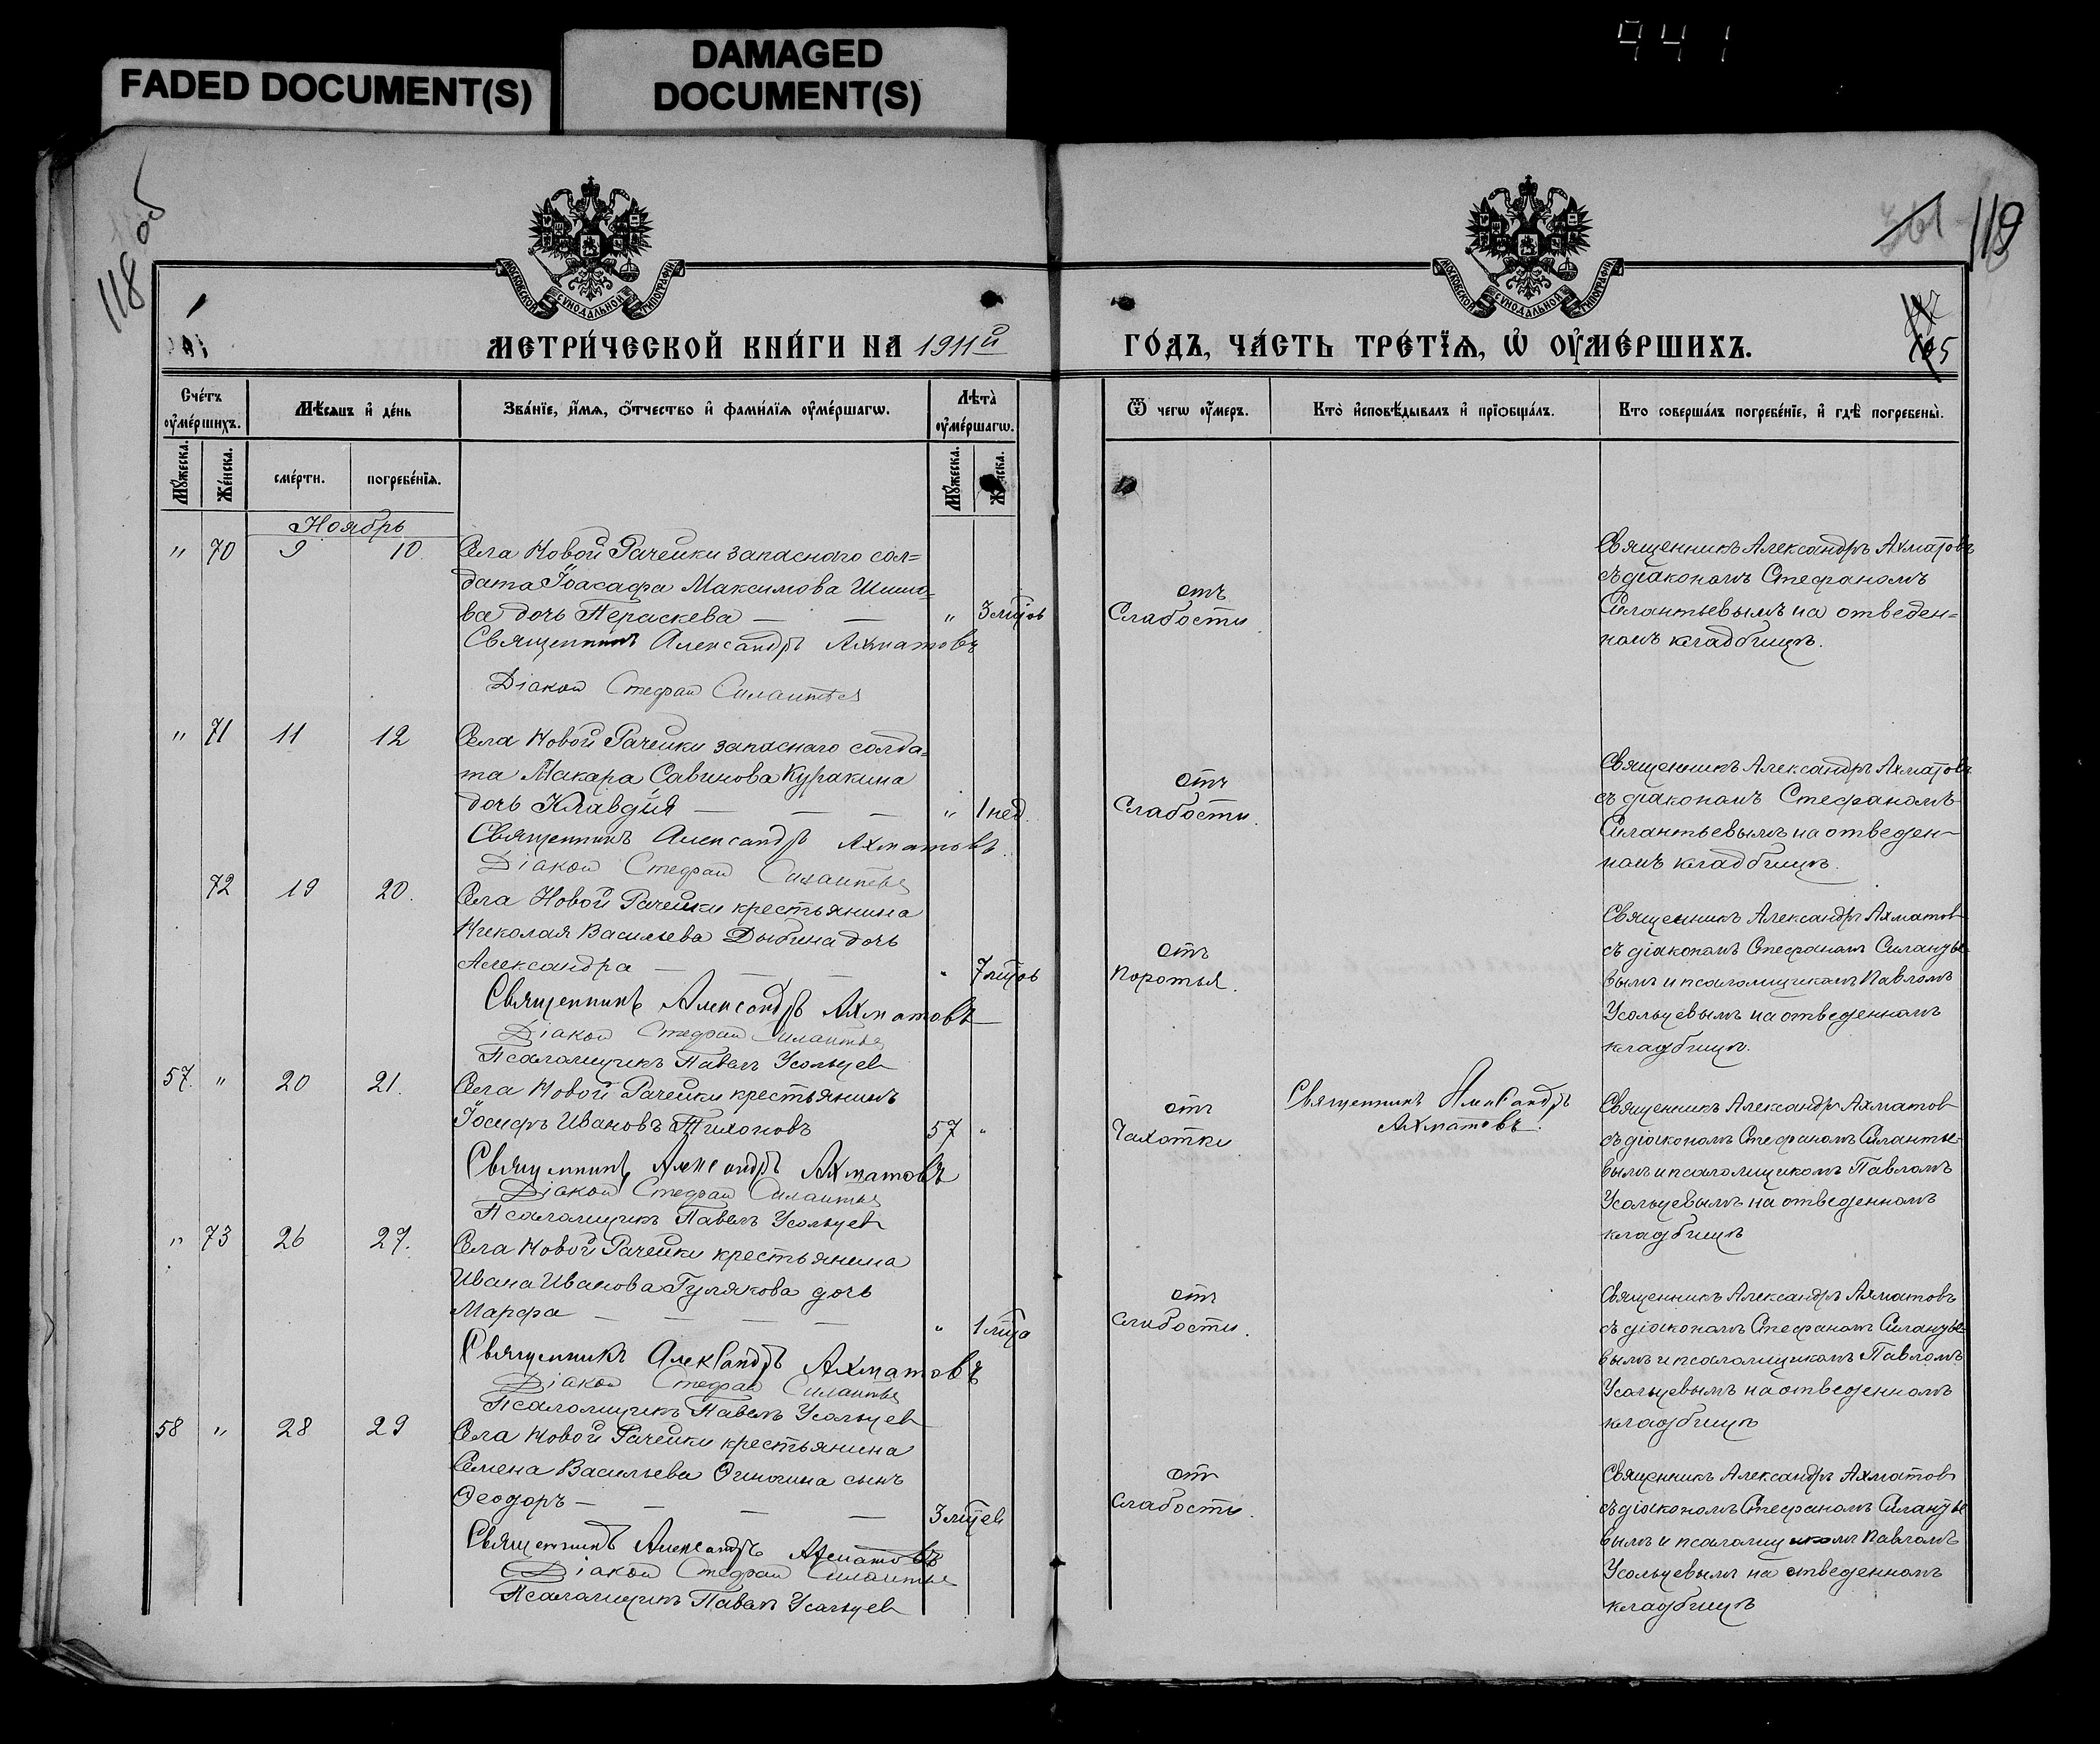 FADED DOCUMENT(S)
DAMAGED
DOCUMENT(S)
441
118 об
119
МОСКОВСКОЙ СѴНОДАЛЬНОЙ ТИПОГРАФІИ
МОСКОВСКОЙ СѴНОДАЛЬНОЙ ТИПОГРАФІИ
МЕТРИ́ЧЕСКОЙ КНИ́ГИ НА 1911й
ГО́ДЪ, ЧА́СТЬ ТРЕ́ТЇѦ, Ѡ҆ ОУ҆МЕ́РШИХЪ.
Сче́тъ оу҆ме́ршихъ.
Мѣ́сяцъ и҆ де́нь
Зва́нїе, и҆́мя, ѻ҆́тчество и҆ фами́лїя оу҆ме́ршагѡ.
Лѣта̀ оу҆ме́ршагѡ.
Ѿ чегѡ оу҆́меръ.
Кто̀ и҆сповѣ́дывалъ и҆ прїѡбща́лъ.
Кто соверша́лъ погребе́нїе, и҆ гдѣ̀ погребены̀.
Мꙋ́жеска.
Же́нска.
сме́рти.
погребе́нїя.
Мꙋ́жеска.
Же́нска.
Ноябрь
" 70 9 10. Села Новой Рачейки запаснаго сол=
дата Іоасафа Максимова Шишо-
ва дочь Пераскева — — " 3 мѣсо́въ
Священникъ Александръ Ахматовъ
Діакон Стефан Силантьев
отъ
Слабости.
Священникъ Александръ Ахматовъ
съ діакономъ Стефаномъ
Силантьевымъ на отведен=
номъ кладбищѣ.
" 71 11 12 Села Новой Рачейки запаснаго солда=
та Макара Савинова Куракина
дочь Клавдія — — — " 1 нед.
Священникъ Александръ Ахматовъ.
Діакон Стефан Силантьев
отъ
Слабости.
Священникъ Александръ Ахматовъ
съ діакономъ Стефаномъ
Силантьевымъ на отведен-
номъ кладбищѣ.
72 19 20. Села Новой Рачейки крестьянина
Николая Васильева Дыбина дочь
Александра — — — " 7 мѣсовъ
Священникъ Александръ Ахматовъ
Діакон Стефан Силантьев
Псаломщикъ Павелъ Усольцев
отъ
поротья.
Священникъ Александръ Ахматов
съ діакономъ Стефаномъ Силантье-
вымъ и псаломщикомъ Павломъ
Усольцевымъ на отведенномъ
кладбищѣ.
57. " 20 21. Села Новой Рачейки крестьянинъ
Іосифъ Ивановъ Тихоновъ 57 "
Священникъ Александръ Ахматовъ
Діакон Стефан Силантьев
Псаломщикъ Павелъ Усольцев
отъ
Чахотки
Священникъ Александръ
Ахматовъ.
Священникъ Александръ Ахматов
съ діакономъ Стефаномъ Силантье-
вымъ и псаломщикомъ Павломъ
Усольцевымъ на отведенномъ
кладбищѣ
" 73 26 27. Села Новой Рачейки крестьянина
Ивана Иванова Гулякова дочь
Марфа — — — — " 1 мѣца
Священникъ Александръ Ахматовъ
Діакон Стефан Силантьев
Псаломщикъ Павелъ Усольцев
отъ
Слабости.
Священникъ Александръ Ахматовъ
съ діакономъ Стефаномъ Силантье-
вымъ и псаломщикомъ Павломъ
Усольцевымъ на отведенномъ
кладбищѣ
58 " 28 29 Села Новой Рачейки крестьянина
Семена Васильева сынъ
Ѳеодоръ — — — — 3 мѣцев
Священникъ Александръ Ахматовъ
Діакон Стефан Силантьев
Псаломщикъ Павелъ Усольцев
отъ
Слабости.
Священникъ Александръ Ахматов
съ діакономъ Стефаномъ Силантье
вымъ и псаломщикомъ Павломъ
Усольцевымъ на отведенномъ
кладбищѣ